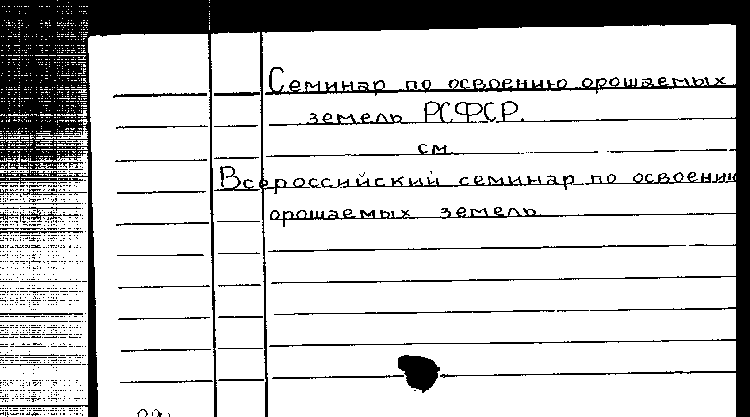 Семинар по освоению орошаемых
земель РСФСР.
см
Всероссийский семинар по освоению
орошаемых земель